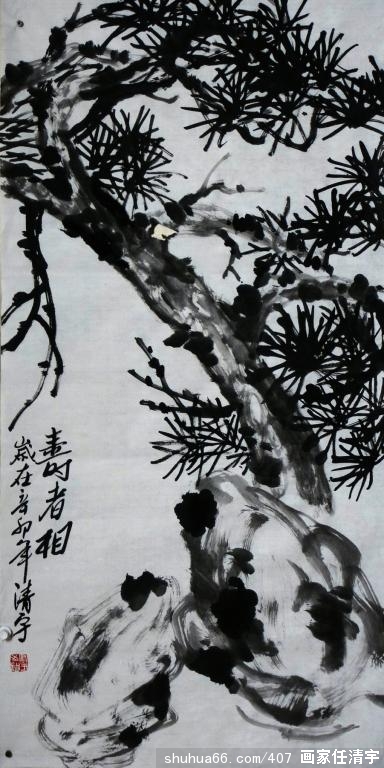 寿者相
歲在辛卯年清宇
shuhua66.com/407 画家任清宇